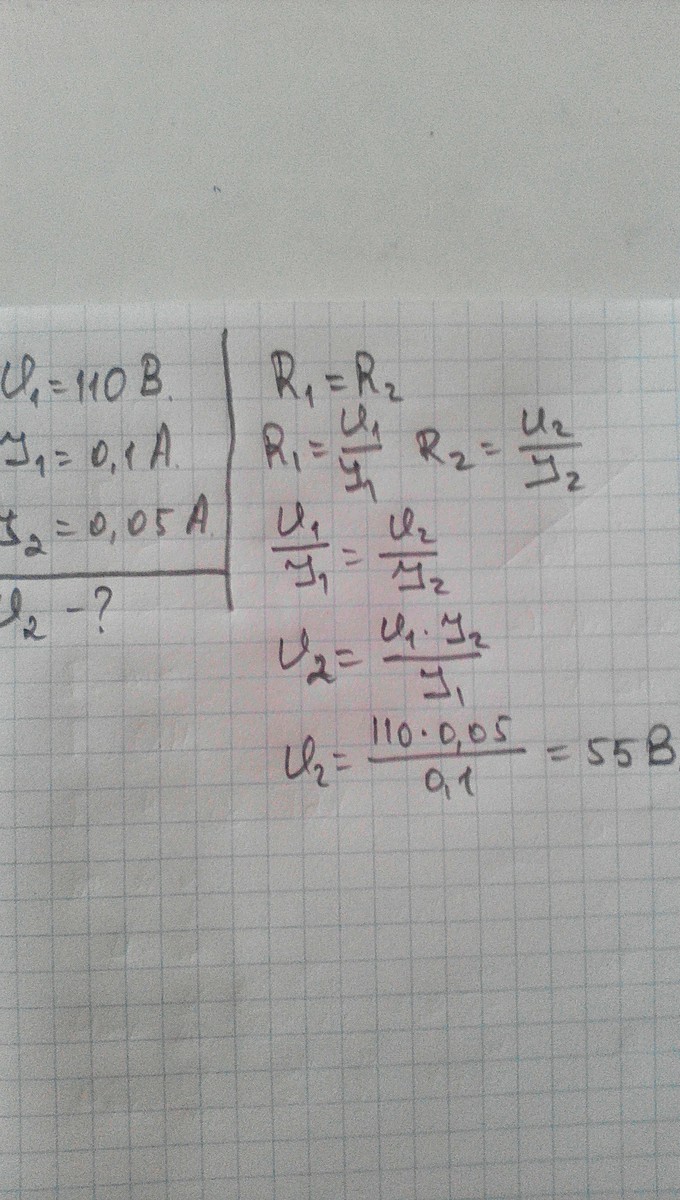 U₁ = 110 В.
I₁ = 0,1 А.
I₂ = 0,05 А.
U₂ - ?
R₁ = R₂
R₁ = U₁/I₁ R₂ = U₂/I₂
U₁/I₁ = U₂/I₂
U₂ = U₁·I₂/I₁
U₂ = 110·0,05/0,1 = 55 В